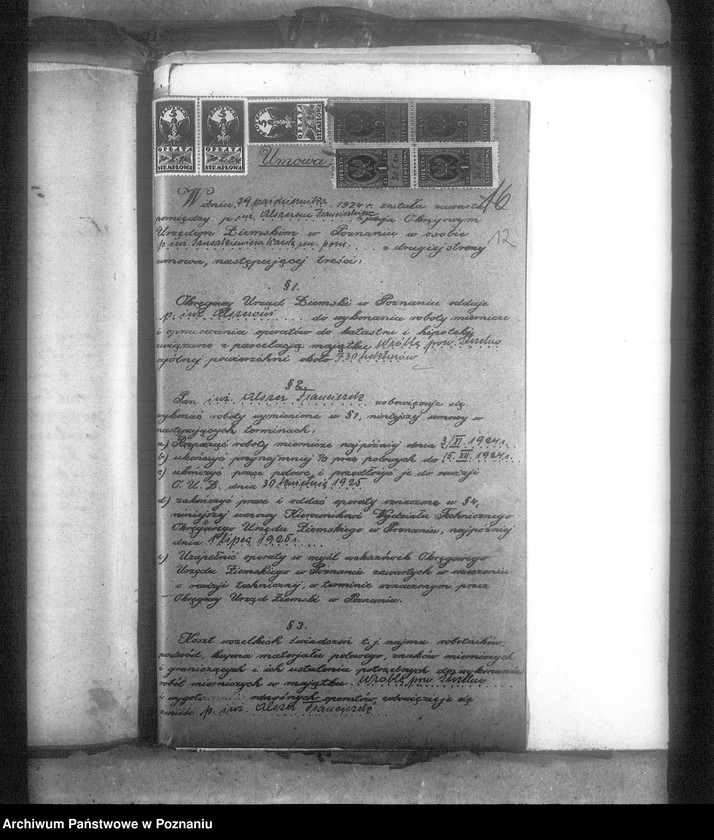 OPŁATA
STEMPLOWA
OPŁATA
STEMPLOWA
OPŁATA
STEMPLOWA
Umowa
16
12
W dniu 29 października 1924 r. została zawarta
pomiędzy p. inż. Alszerem Franciszkiem a Okręgowym
Urzędem Ziemskim w Poznaniu w osobie
p. inż. z drugiej strony
umowa, następującej treści:
§ 1.
Okręgowy Urząd Ziemski w Poznaniu oddaje
p. inż. Alszerowi do wykonania roboty miernicze
i opracowania operatów do katastru i hipoteki
związane z parcelacją majątku Wróble pow. Strzelno
ogólnej powierzchni około 730 hektarów
§ 2.
Pan inż. Alszer Franciszek zobowiązuje się
wykonać roboty wymienione w §1, niniejszej umowy w
następujących terminach:
a) Rozpocząć roboty miernicze najpóźniej dnia 3/XI 1924 r.
b) ukończyć przynajmniej prac polowych do 15. XII. 1924 r.
c) ukończyć prace polowe i przedłożyć je do rewizji
O. U. Z. dnia 30 1925
d) zakończyć prace i oddać operaty oznaczone w §4,
niniejszej umowy Kierownikowi Wydziału Technicznego
Okręgowego Urzędu Ziemskiego w Poznaniu, najpóźniej
dnia 1 lipca 1925 r.
e) Uzupełnić operaty w myśl wskazówek Okręgowego
Urzędu Ziemskiego w Poznaniu zawartych w orzeczeniu
o rewizji technicznej, w terminie oznaczonym przez
Okręgowy Urząd Ziemski w Poznaniu.
§ 3.
Koszt wszelkich świadczeń t. j. najmu robotników,
podwód, kupna materjału polowego, znaków mierniczych
i granicznych i ich ustalenia potrzebnych do wykonania
robót mierniczych w majątku Wróble pow. Strzelno
i operatów, zobowiązuje się
p. inż. Alszer Franciszek
Archiwum Państwowe w Poznaniu